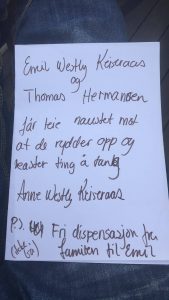 Emil Westly Keiseraas
og
Thomas Hermansen
får leie naustet mot
at de rydder opp og
kaster ting å
Anne Westly Keiseraas
P.S. Fri dispensasjon fra
familien til Emil